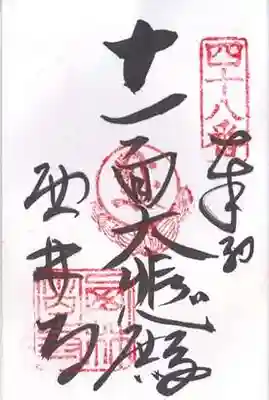 四十八番
奉納
十一面大悲殿
西林寺